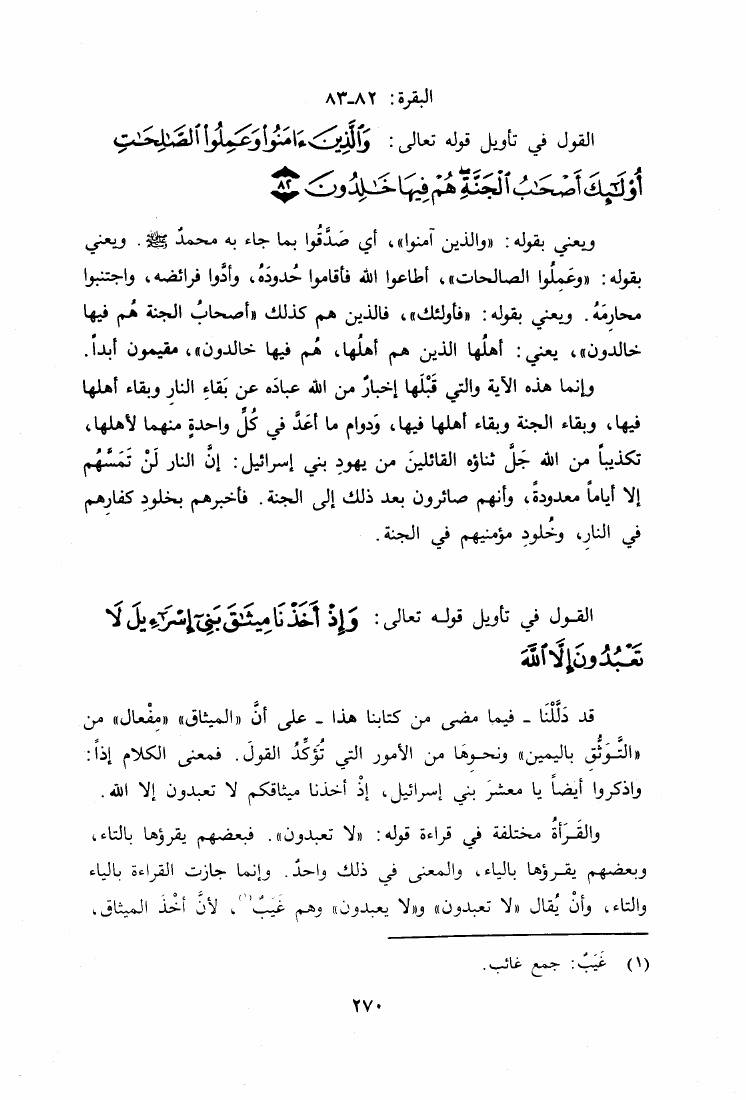 البقرة: ٨٢-٨٣
القول في تأويل قوله تعالى: وَٱلَّذِينَ ءَامَنُوا۟ وَعَمِلُوا۟ ٱلصَّـٰلِحَـٰتِ
أُو۟لَـٰٓئِكَ أَصْحَـٰبُ ٱلْجَنَّةِ ۖ هُمْ فِيهَا خَـٰلِدُونَ ٨٢
ويعني بقوله: «والذين آمنوا»، أي صَدَّقُوا بما جاء به محمدٌ ﷺ. ويعني
بقوله: «وعَمِلُوا الصالحات»، أطاعوا الله فأقاموا حُدودَهُ، وأدَّوا فرائضه، واجتنبوا
محارِمَهُ. ويعني بقوله: «فأولئك»، فالذين هم كذلك «أصحابُ الجنة هُم فيها
خالدون»، يعني: أهلُها الذين هم أهلُها، هُم فيها خالدون»، مقيمون أبداً.
وإنما هذه الآية والتي قَبْلَها إخبارٌ من الله عبادَه عن بَقاءِ النار وبقاء أهلها
فيها، وبقاء الجنة وبقاء أهلها فيها، وَدوام ما أعَدَّ في كُلِّ واحدةٍ منهما لأهلها،
تكذيباً من الله جَلَّ ثناؤه القائلينَ من يهودِ بني إسرائيل: إنَّ النار لَنْ تَمَسَّهُم
إلا أياماً معدودةً، وأنهم صائرون بعد ذلك إلى الجنة. فأخبرهم بخلودِ كفارِهم
في النارِ، وخُلودِ مؤمنيهم في الجنة.
القول في تأويل قوله تعالى: وَإِذْ أَخَذْنَا مِيثَـٰقَ بَنِىٓ إِسْرَٰٓءِيلَ لَا
تَعْبُدُونَ إِلَّا ٱللَّهَ
قد دَلَّلْنَا - فيما مضى من كتابنا هذا - على أنَّ «الميثاق» «مِفْعال» من
«التَّوَثُّقِ باليمين» ونحوِهَا من الأمور التي تُؤَكِّدُ القولَ. فمعنى الكلام إذاً:
واذكروا أيضاً يا معشرَ بني إسرائيل، إذْ أخذنا ميثاقكم لا تعبدون إلا الله.
والقَرَأةُ مختلفة في قراءة قوله: «لا تعبدون». فبعضهم يقرؤها بالتاء،
وبعضهم يقرؤها بالياء، والمعنى في ذلك واحدٌ. وإنما جازت القراءة بالياء
والتاء، وأنْ يُقال «لا تعبدون» و«لا يعبدون» وهم غَيَبٌ(١)، لأنَّ أخْذَ الميثاق،
(١) غَيَبٌ: جمع غائب.
٢٧٠